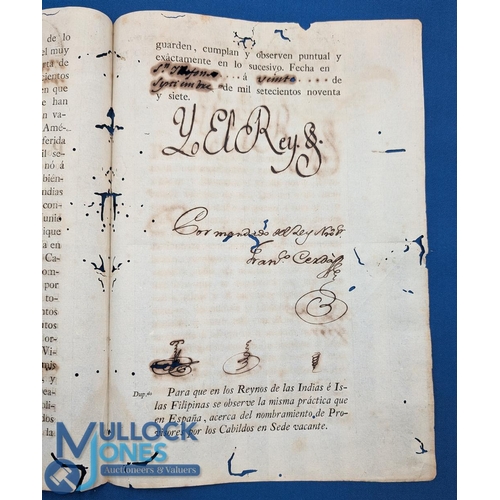 de lo
el muy
rta de
cientos
en que
e han
en va-
Amé-
ferida
mil se-
nó á
mbién-
ndias
con-
unio
que
a en
Ca-
om-
por
to-
ntos
tos
or-
Vi-
mis
s y
des
a-
la
guarden, cumplan y observen puntual y
exactamente en lo sucesivo. Fecha en
Sn. Ildefonso á veinte de
Septiembre de mil setecientos noventa
y siete.
Y. El Rey.
Por mandado del Rey Nro Sr
Franco. Cerdá
Dup.do
Para que en los Reynos de las Indias é Is-
las Filipinas se observe la misma práctica que
en España, acerca del nombramiento de Pro-
visores por los Cabildos en Sede vacante.
MULLOCK
JONES
Auctioneers & Valuers